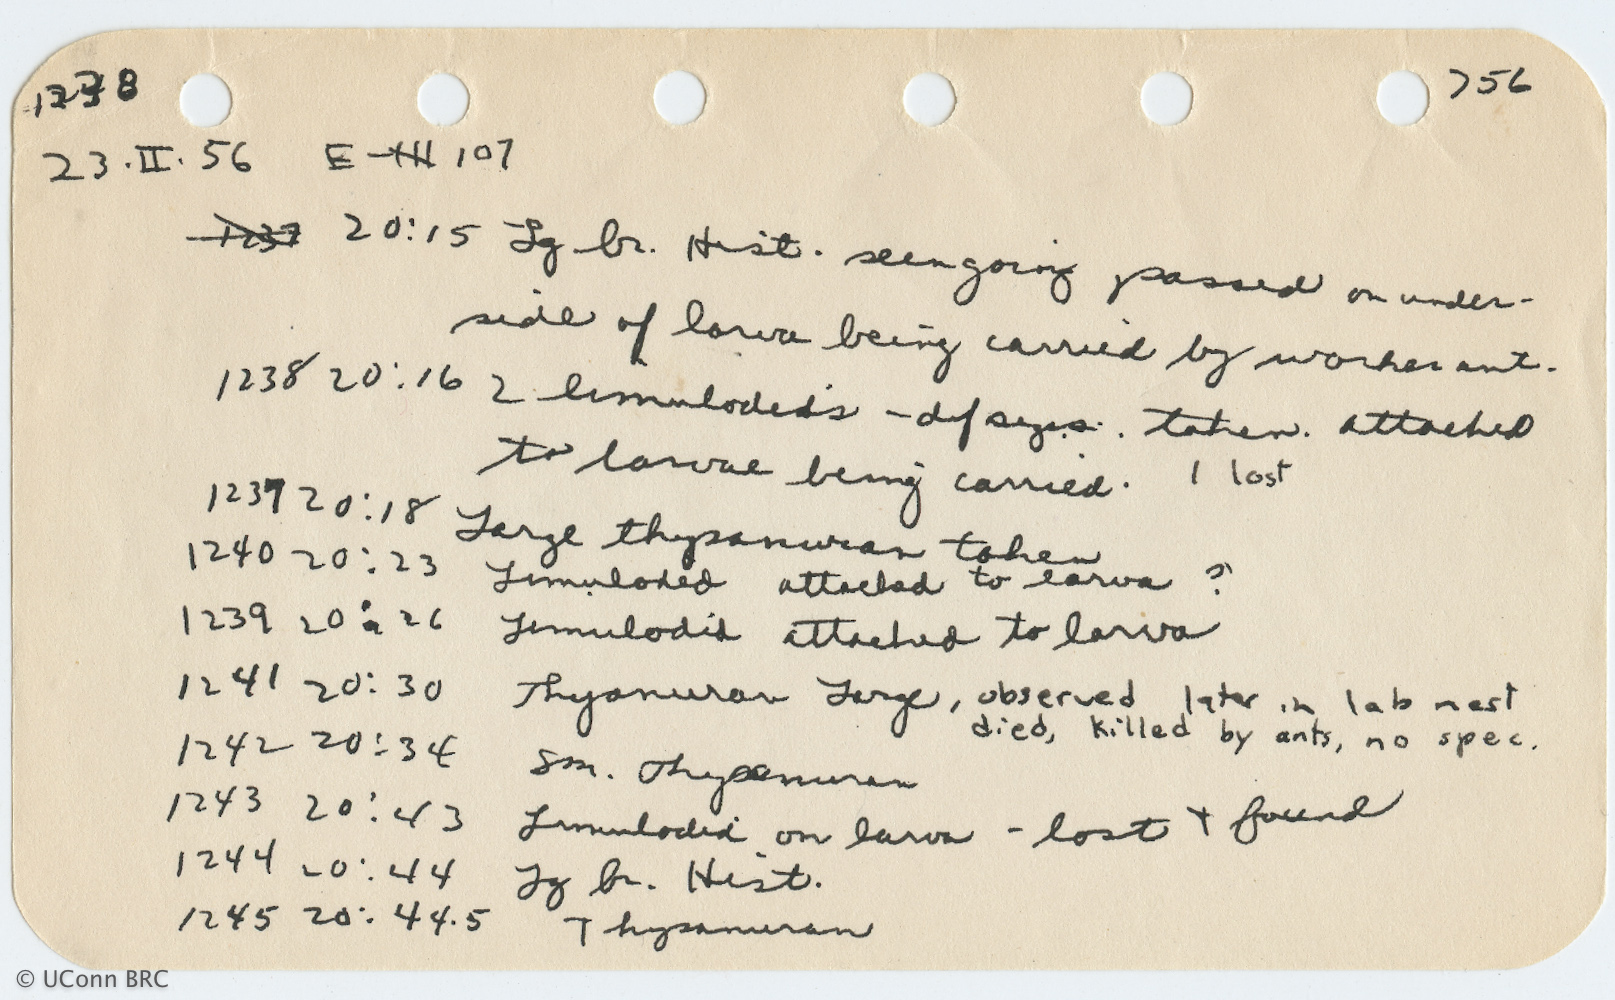 1238 756
23.II.56 E-III 107
1237 20:15 Lg br. Hist. seen going passed on under-
side of larva being carried by worker ant.
1238 20:16 2 limulodids - dif sizes. taken. attached
to larvae being carried. 1 lost
1237 20:18 Large thysanuran taken
1240 20:23 Limuloded attached to larva ?
1239 20:26 Limulodid attached to larva
1241 20:30 Thysanuran Large, observed later in lab nest
died, killed by ants, no spec.
1242 20:34 Sm. Thysanuran
1243 20:43 Limulodid on larva - lost + found
1244 20:44 Lg br. Hist.
1245 20:44.5 Thysanuran
© UConn BRC